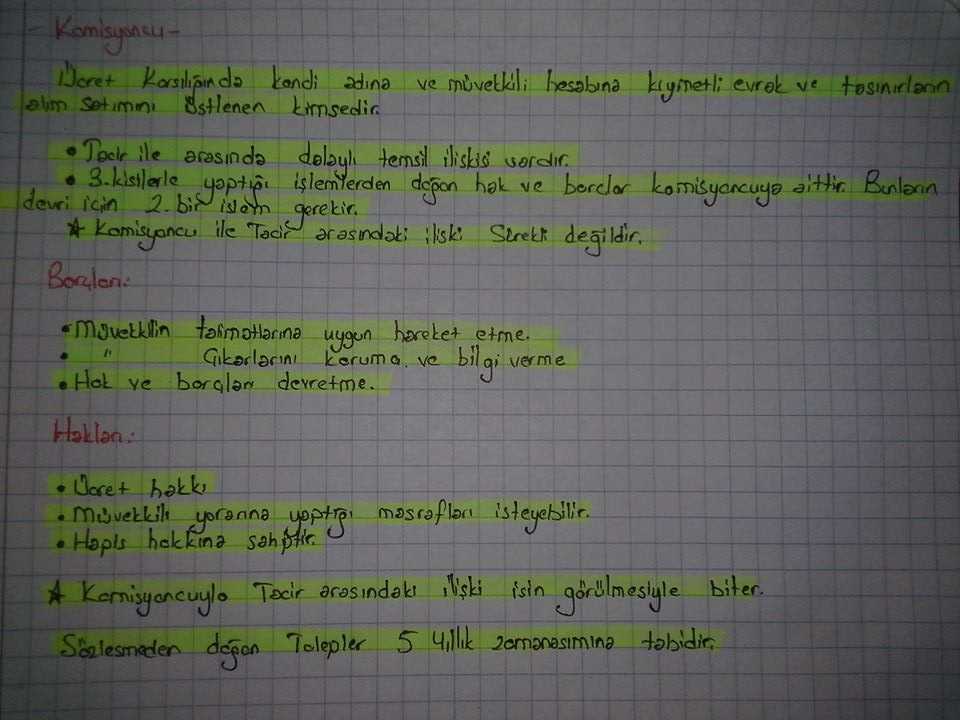 - Komisyoncu -
Ücret Karşılığında kendi adına ve müvekkili hesabına kıymetli evrak ve taşınırların
alım satımını üstlenen kimsedir.
• Tacir ile arasında dolaylı temsil ilişkisi vardır.
• 3. kişilerle yaptığı işlemlerden doğan hak ve borçlar komisyoncuya aittir. Bunların
devri için 2. bir işlem gerekir.
★ Komisyoncu ile Tacir arasındaki ilişki Sürekli değildir.
Borçları:
• Müvekkilin talimatlarına uygun hareket etme.
• " Çıkarlarını koruma ve bilgi verme
• Hak ve borçları devretme.
Hakları:
• Ücret hakkı
• Müvekkili yararına yaptığı masrafları isteyebilir.
• Hapis hakkına sahiptir.
★ Komisyoncuyla Tacir arasındaki ilişki işin görülmesiyle biter.
Sözleşmeden doğan Talepler 5 Yıllık zamanaşımına tabidir.